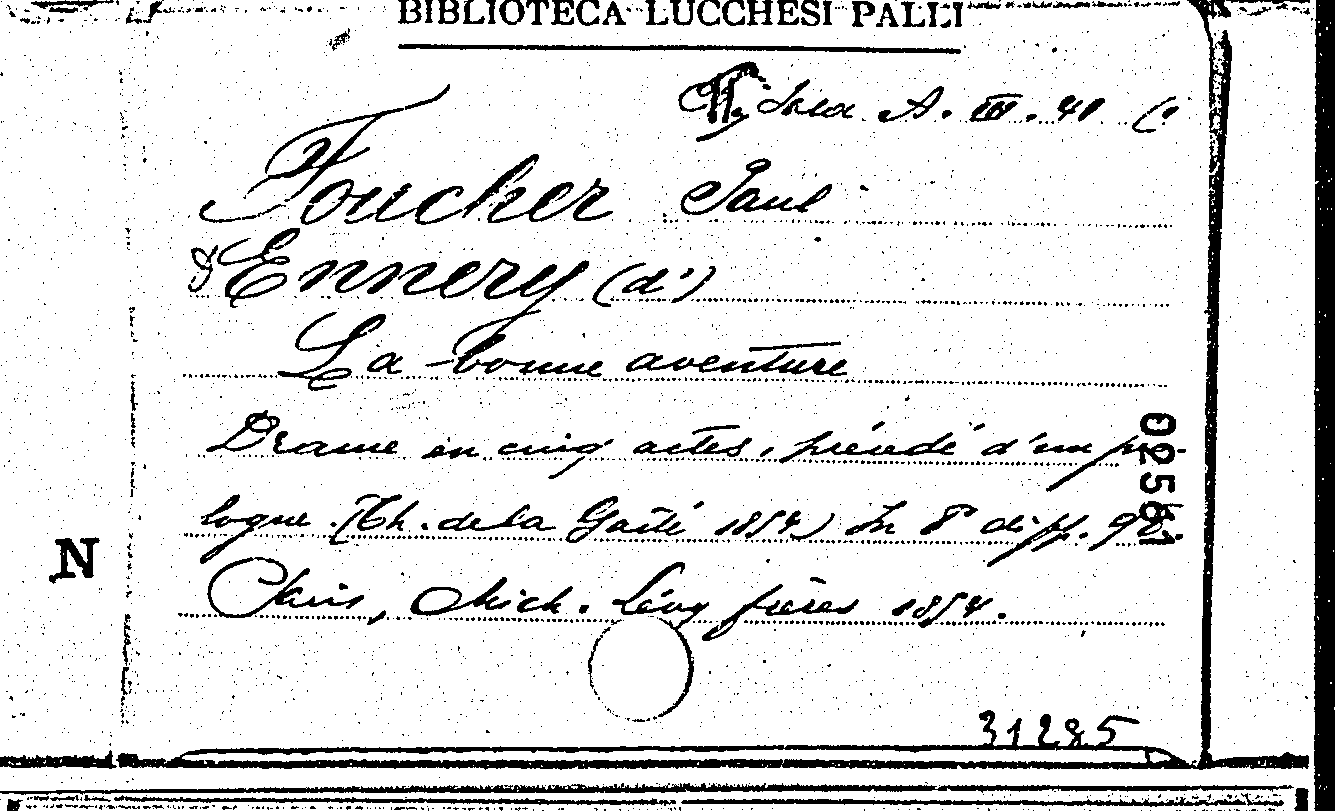 BIBLIOTECA LUCCHESI PALLI
Sala A. III. 40 (1
Foucher Paul
& Ennery (d')
La bonne aventure
Drame en cinq actes, précédé d'un pro-
logue. (Th. de la Gaîté 1854) In 8° di pp.
Paris, Mich. Lévy frères 1854.
N
31285